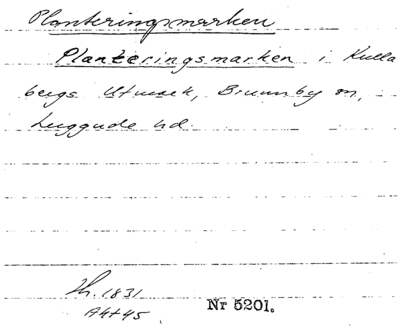 Planteringsmarken
Planteringsmarken i Kulla
bergs Utmark, Brunnby sn,
Luggude hd.
Lh. 1831
A4+45
Nr 5201.